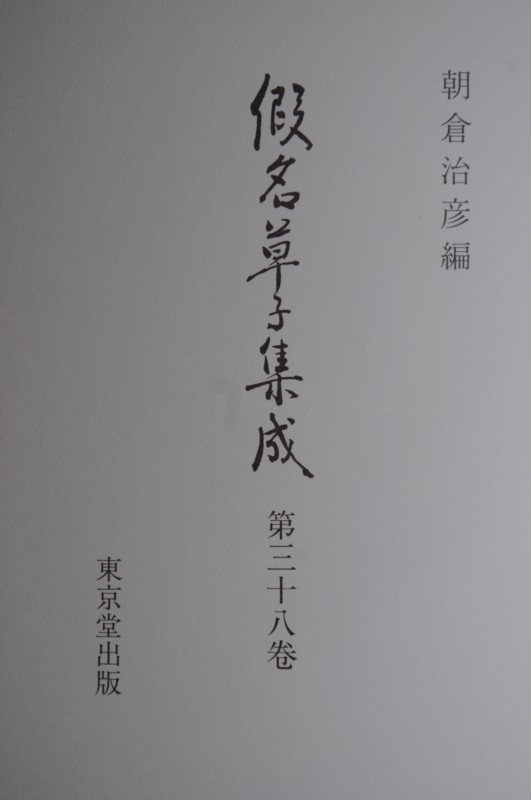 朝倉治彦編
假名草子集成
第三十八卷
東京堂出版